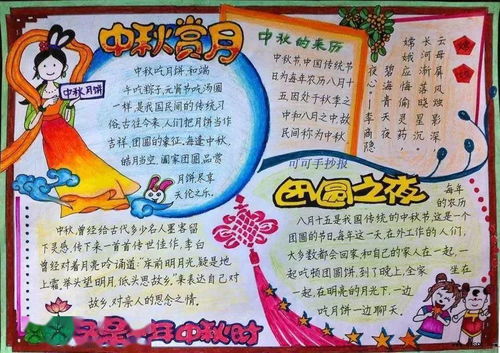 中秋赏月
中秋月饼
中秋吃月饼,和端
午吃粽子,元宵节吃汤圆
一样是我国民间的传统习
俗,古往今来,人们把月饼当作
吉祥,团圆的象征,每逢中秋,
皓月当空,阖家团圆,品赏
月饼尽享
天伦之乐。
中秋的来历
中秋节,中国传统节
日,为每年农历八月十
五,因处于秋季之
中和八月之中,故
民间称为中秋
嫦娥
云母屏风烛影深
长河渐落晓星沉
嫦娥应悔偷灵药
碧海青天夜
夜心——李商隐
可可手抄报
团圆之夜
每年
的农历
八月十五是我国传统的中秋节,这是一个
团圆的节日。每年这一天,在外工作的人们,
大多数都会回家,和自己的家人在一起,一
起吃顿团圆饼,到了晚上,全家坐在
一起,在明亮的月光下,一边
吃月饼一边聊天。
中秋,曾经给古代多少名人墨客留
下灵感,传下来一首首传世佳作,李白
曾经对着月亮吟诵道:“床前明月光,疑是地
上霜,举头望明月,低头思故乡。”来表达自己对
故乡,对亲人的思念之情。
又是一年中秋时